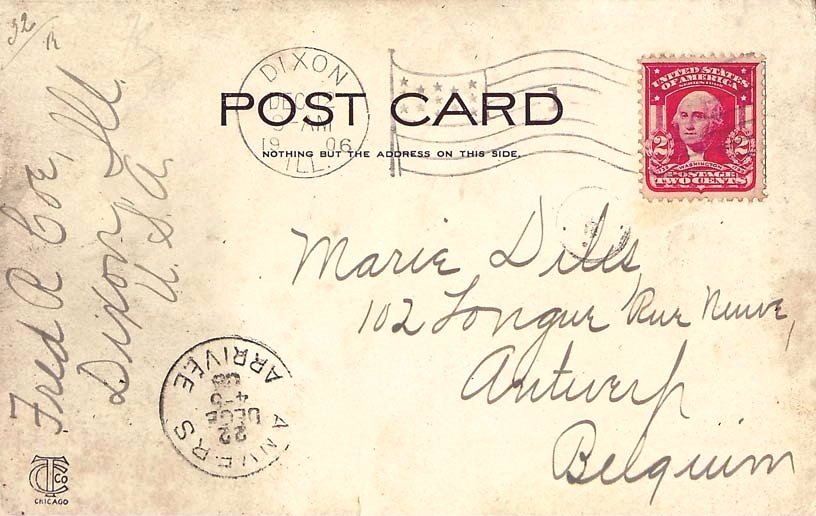 92/R
DIXON
DEC
9-AM
19 06
ILL.
POST CARD
NOTHING BUT THE ADDRESS ON THIS SIDE.
UNITED STATES
OF AMERICA
2 2
WASHINGTON
POSTAGE
TWO CENTS
Fred R Coe,
Dixon Ill.
U.S.A
Marie Dilis
102 Longue Rue Neuve,
Antwerp
Belguim
ANVERS
22
DECE
ARRIVEE
CTCo
CHICAGO